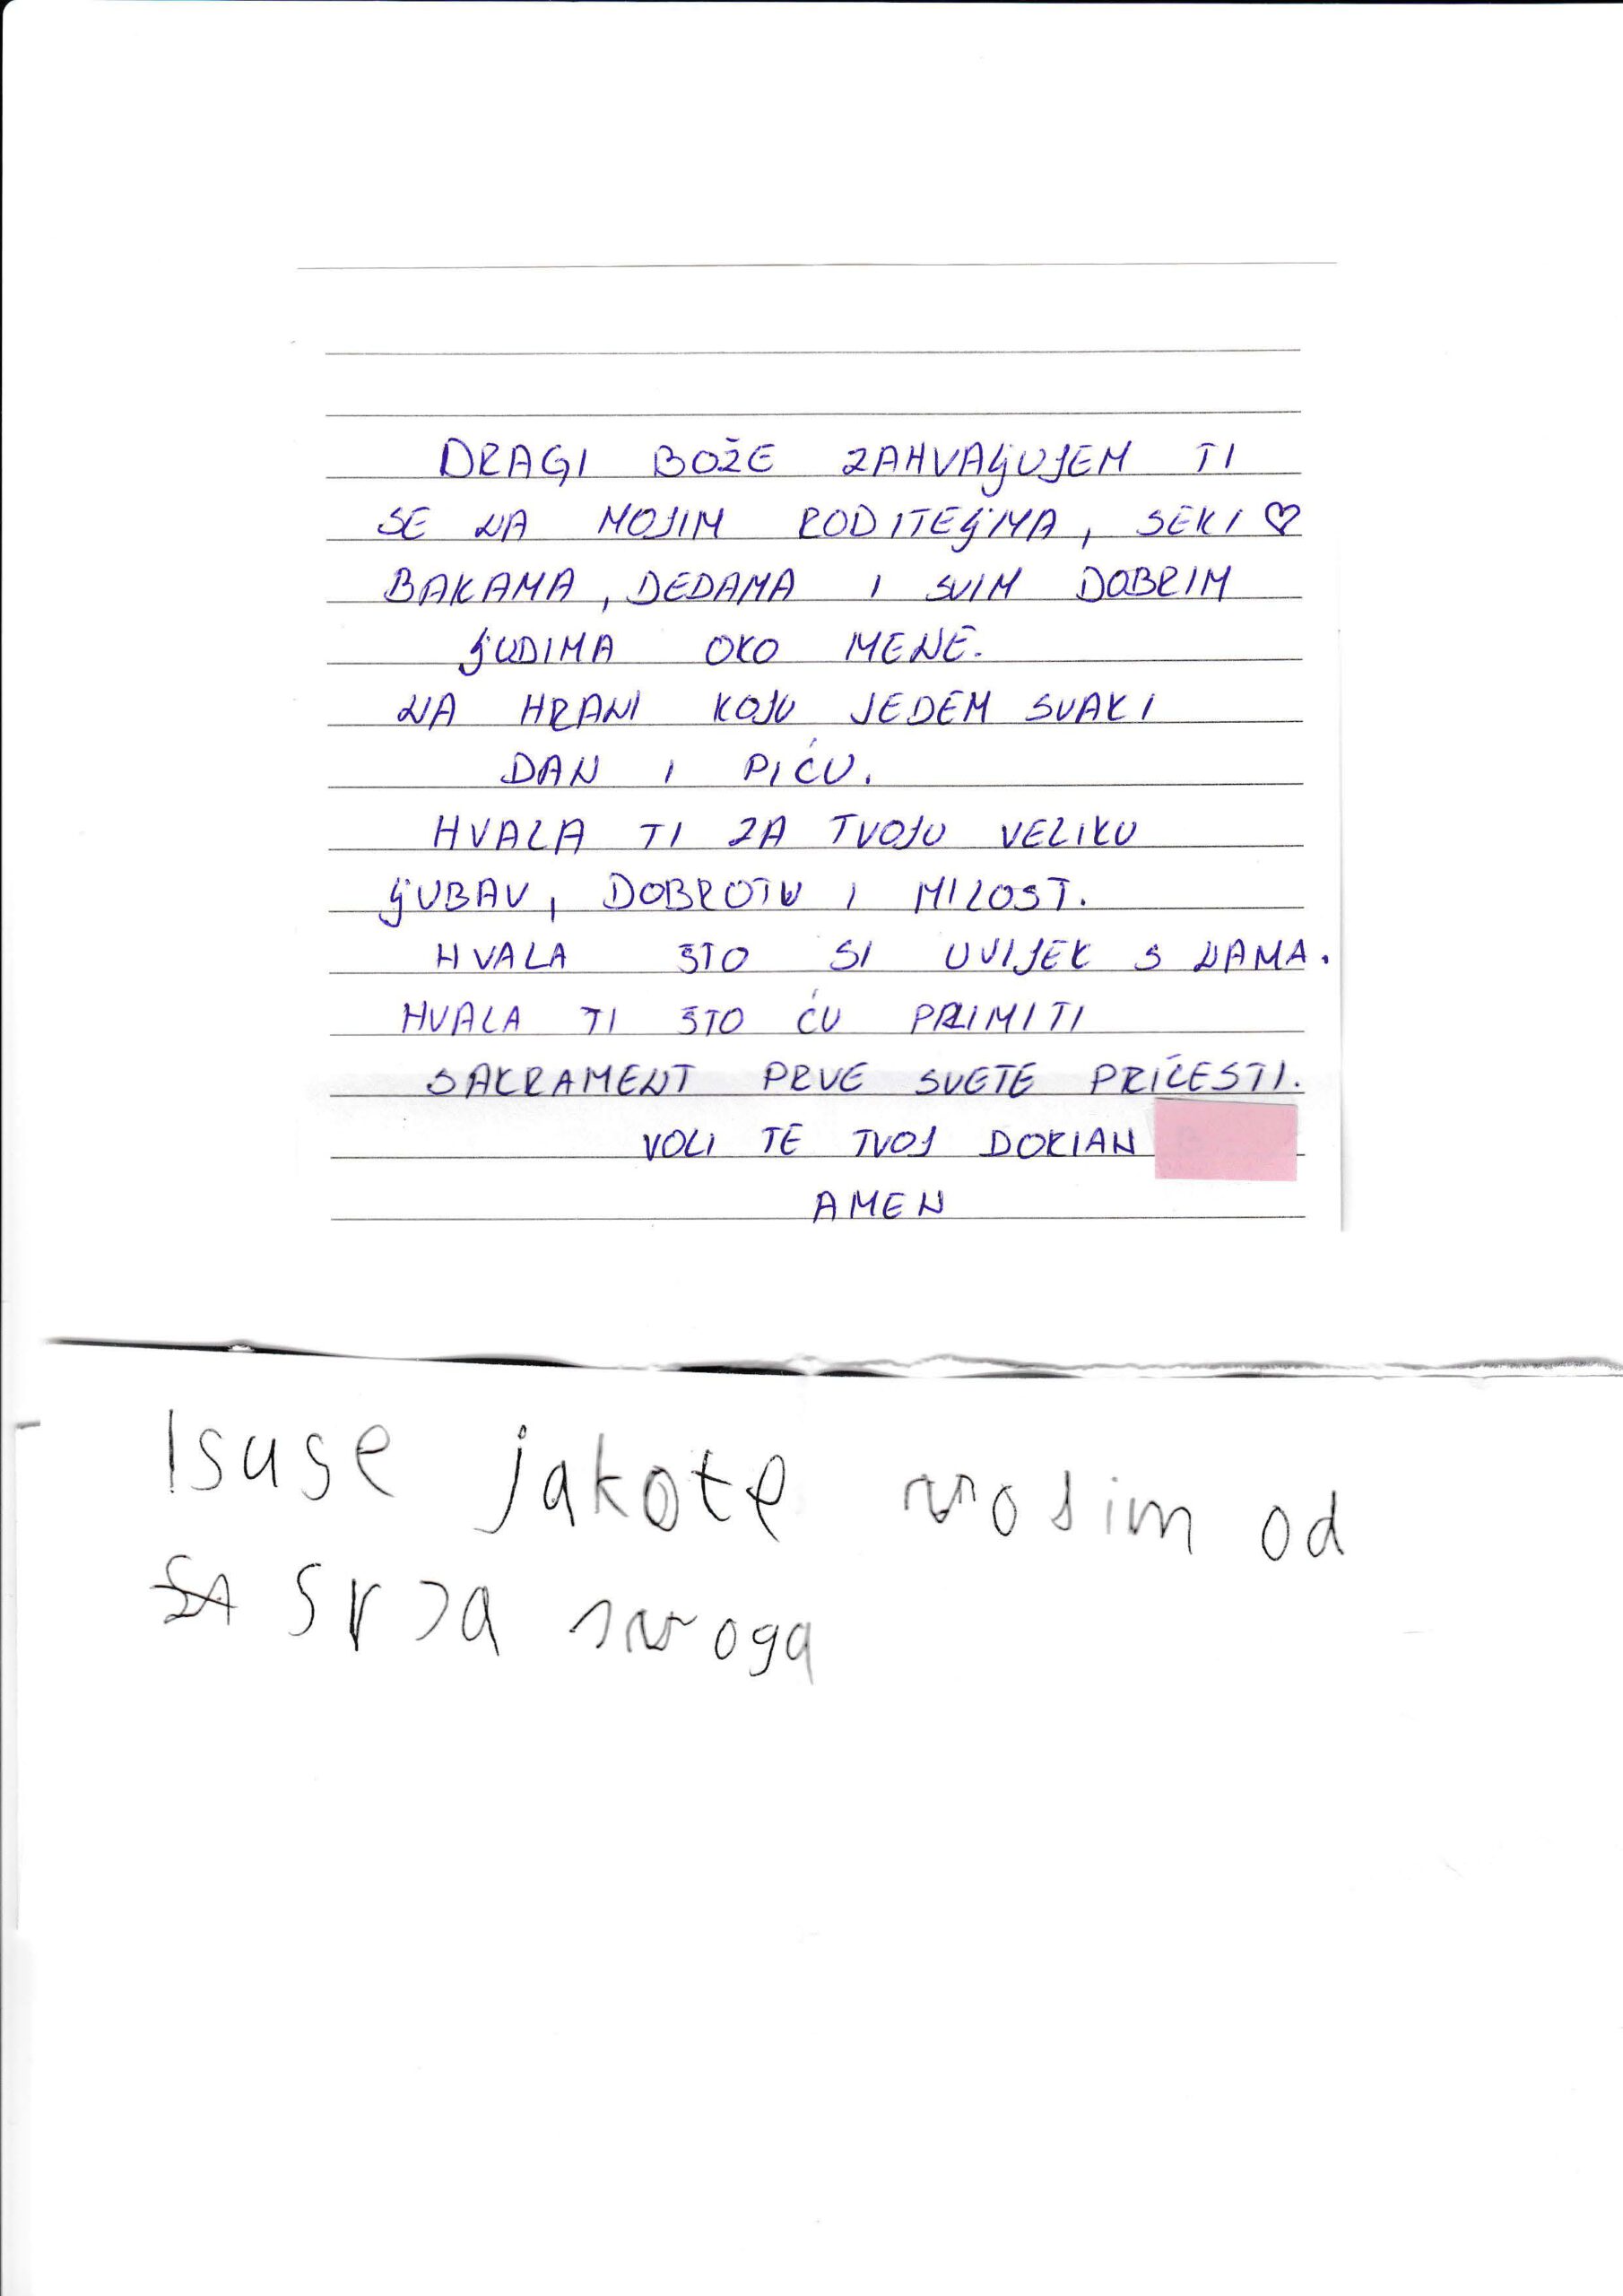 DRAGI BOŽE ZAHVALJUJEM TI
SE NA MOJIM RODITELJIMA, SEKI ♡
BAKAMA, DEDAMA I SVIM DOBRIM
LJUDIMA OKO MENE.
NA HRANI KOJU JEDEM SVAKI
DAN I PIĆU.
HVALA TI ZA TVOJU VELIKU
LJUBAV, DOBROTU I MILOST.
HVALA ŠTO SI UVIJEK S NAMA.
HVALA TI ŠTO ĆU PRIMITI
SAKRAMENT PRVE SVETE PRIČESTI.
VOLI TE TVOJ DORIAN
AMEN
Isuse jakote od